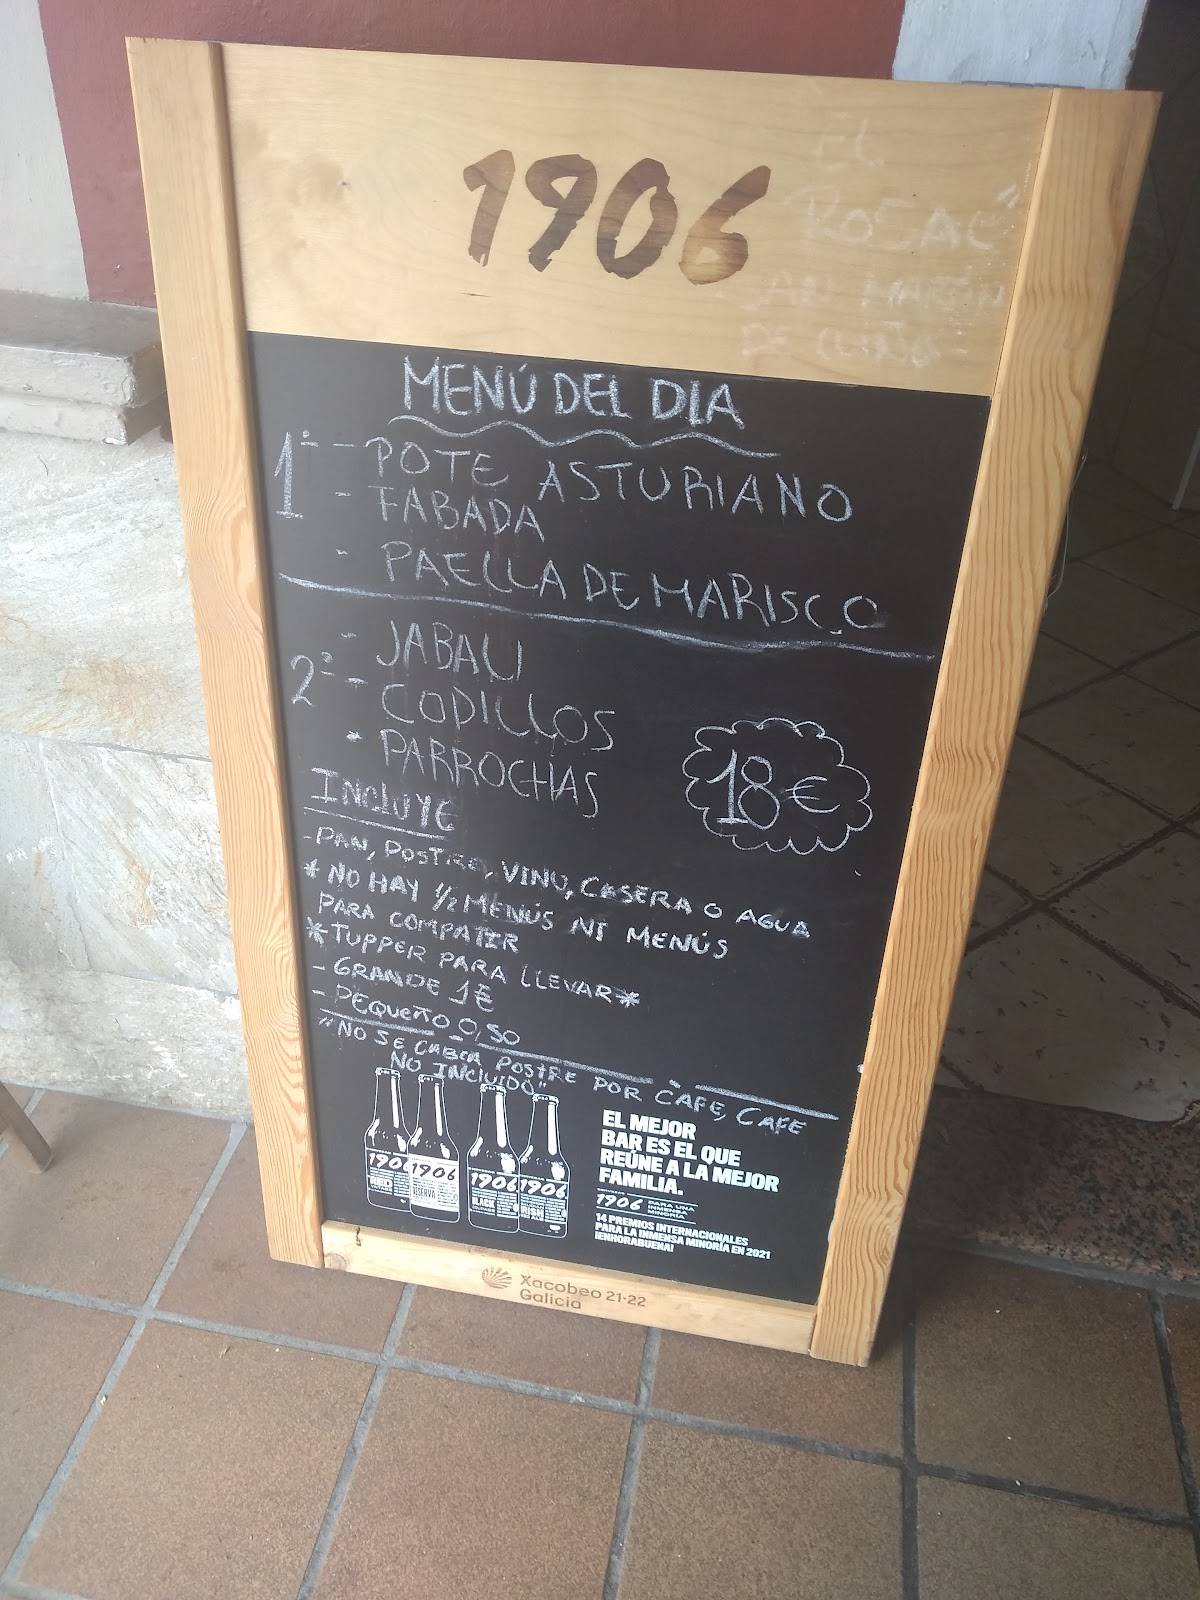 1906
EL
"ROSAL"
SAN MARTIN
DE LUIÑA
MENÚ DEL DIA
1º - POTE ASTURIANO
- FABADA
- PAELLA DE MARISCO
2º - JABALI
- COPILLOS
- PARROCHAS
18€
INCLUYE
- PAN, POSTRE, VINO, CASERA O AGUA
* NO HAY 1/2 MENÚS NI MENÚS
PARA COMPATIR
* TUPPER PARA LLEVAR *
- GRANDE 1€
- PEQUEÑO 0,50
"NO SE CABIA POSTRE POR CAFE, CAFE
NO INCLUIDO"
1906 1906 1906 1906
RED RESERVA BLACK IRISH
EL MEJOR
BAR ES EL QUE
REÚNE A LA MEJOR
FAMILIA.
1906 PARA UNA
INMENSA
MINORÍA
14 PREMIOS INTERNACIONALES
PARA LA INMENSA MINORÍA EN 2021
¡ENHORABUENA!
Xacobeo 21·22
Galicia